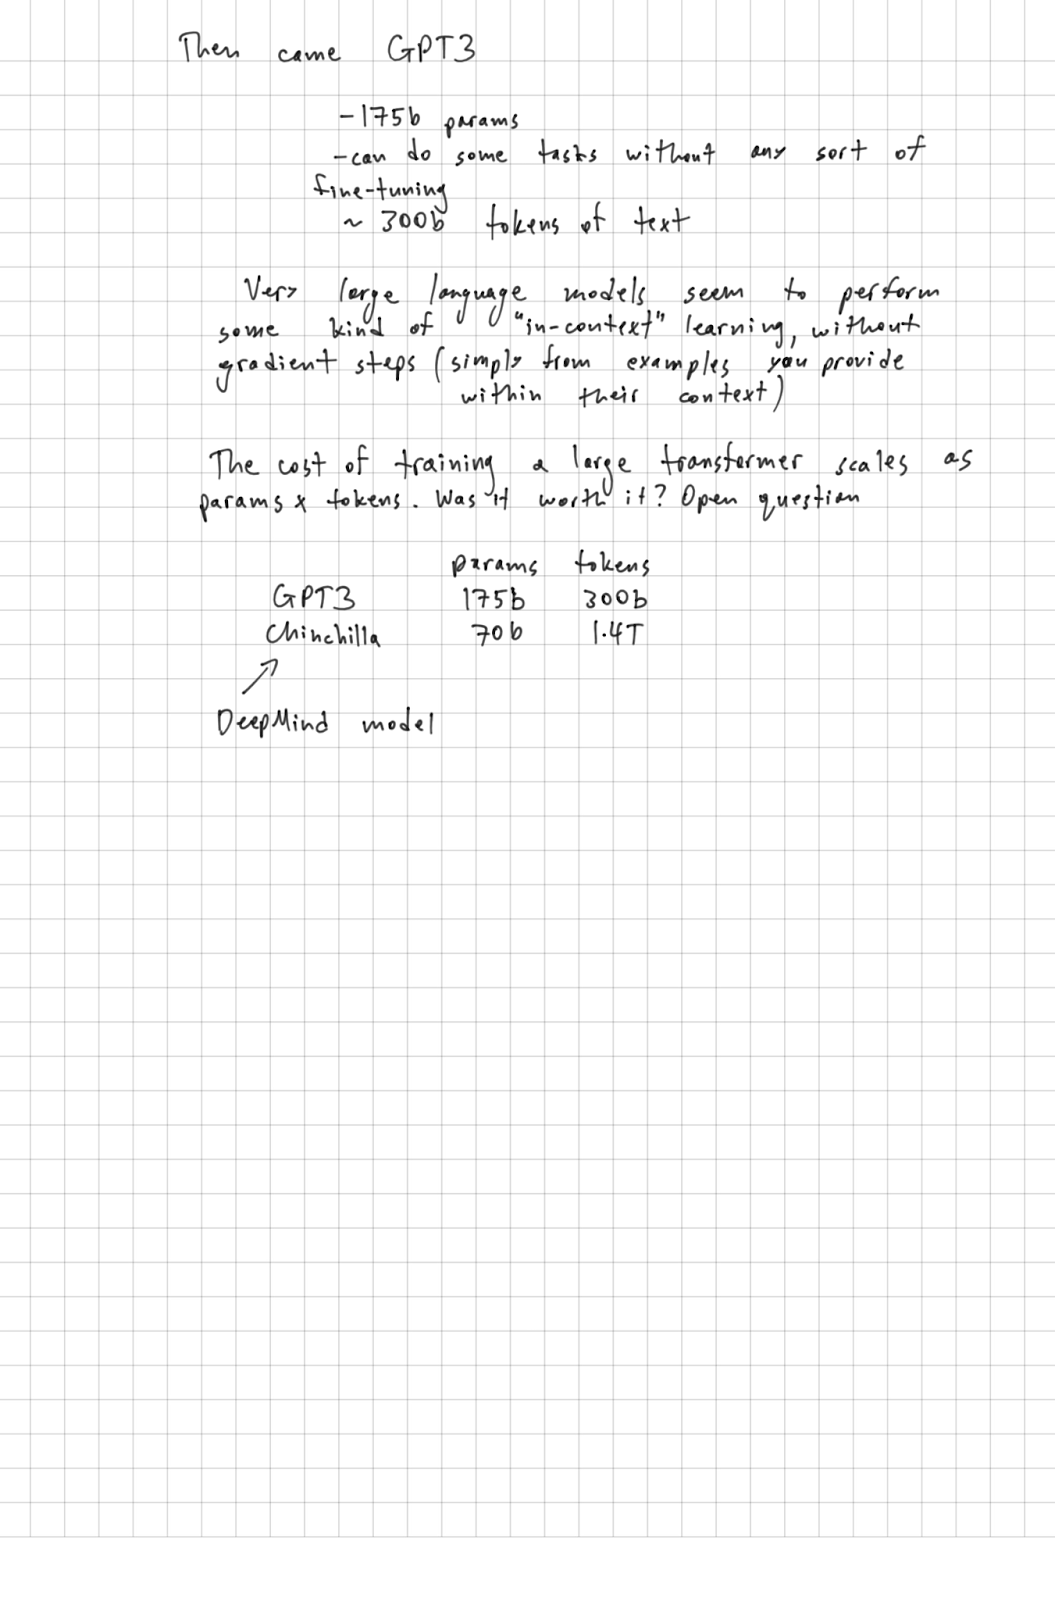 Then came GPT3
-175b params
-can do some tasks without any sort of
fine-tuning
~ 300b tokens of text
Very large language models seem to perform
some kind of "in-context" learning, without
gradient steps (simply from examples you provide
within their context)
The cost of training a large transformer scales as
params x tokens. Was it worth it? Open question
params tokens
GPT3 175b 300b
Chinchilla 70b 1.4T
DeepMind model